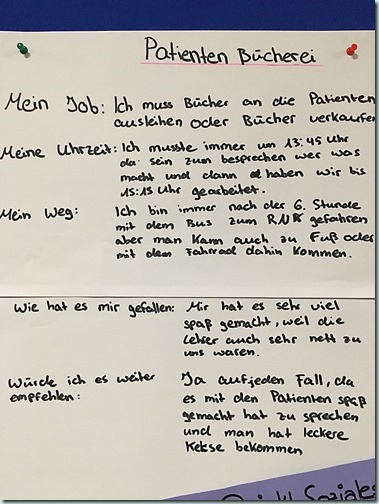 Patienten Bücherei
Mein Job: Ich muss Bücher an die Patienten
ausleihen oder Bücher verkaufen
Meine Uhrzeit: Ich musste immer um 13:45 Uhr
da sein zum besprechen wer was
macht und dann haben wir bis
15:15 Uhr gearbeitet.
Mein Weg: Ich bin immer nach der 6. Stunde
mit dem Bus zum gefahren
aber man kann auch zu Fuß oder
mit dem Fahrrad dahin kommen.
Wie hat es mir gefallen: Mir hat es sehr viel
spaß gemacht, weil die
Leher auch sehr nett zu
uns waren.
Würde ich es weiter
empfehlen:
Ja auf jeden Fall, da
es mit den Patienten spaß
gemacht hat zu sprechen
und man hat leckere
Kekse bekommen
Soziales